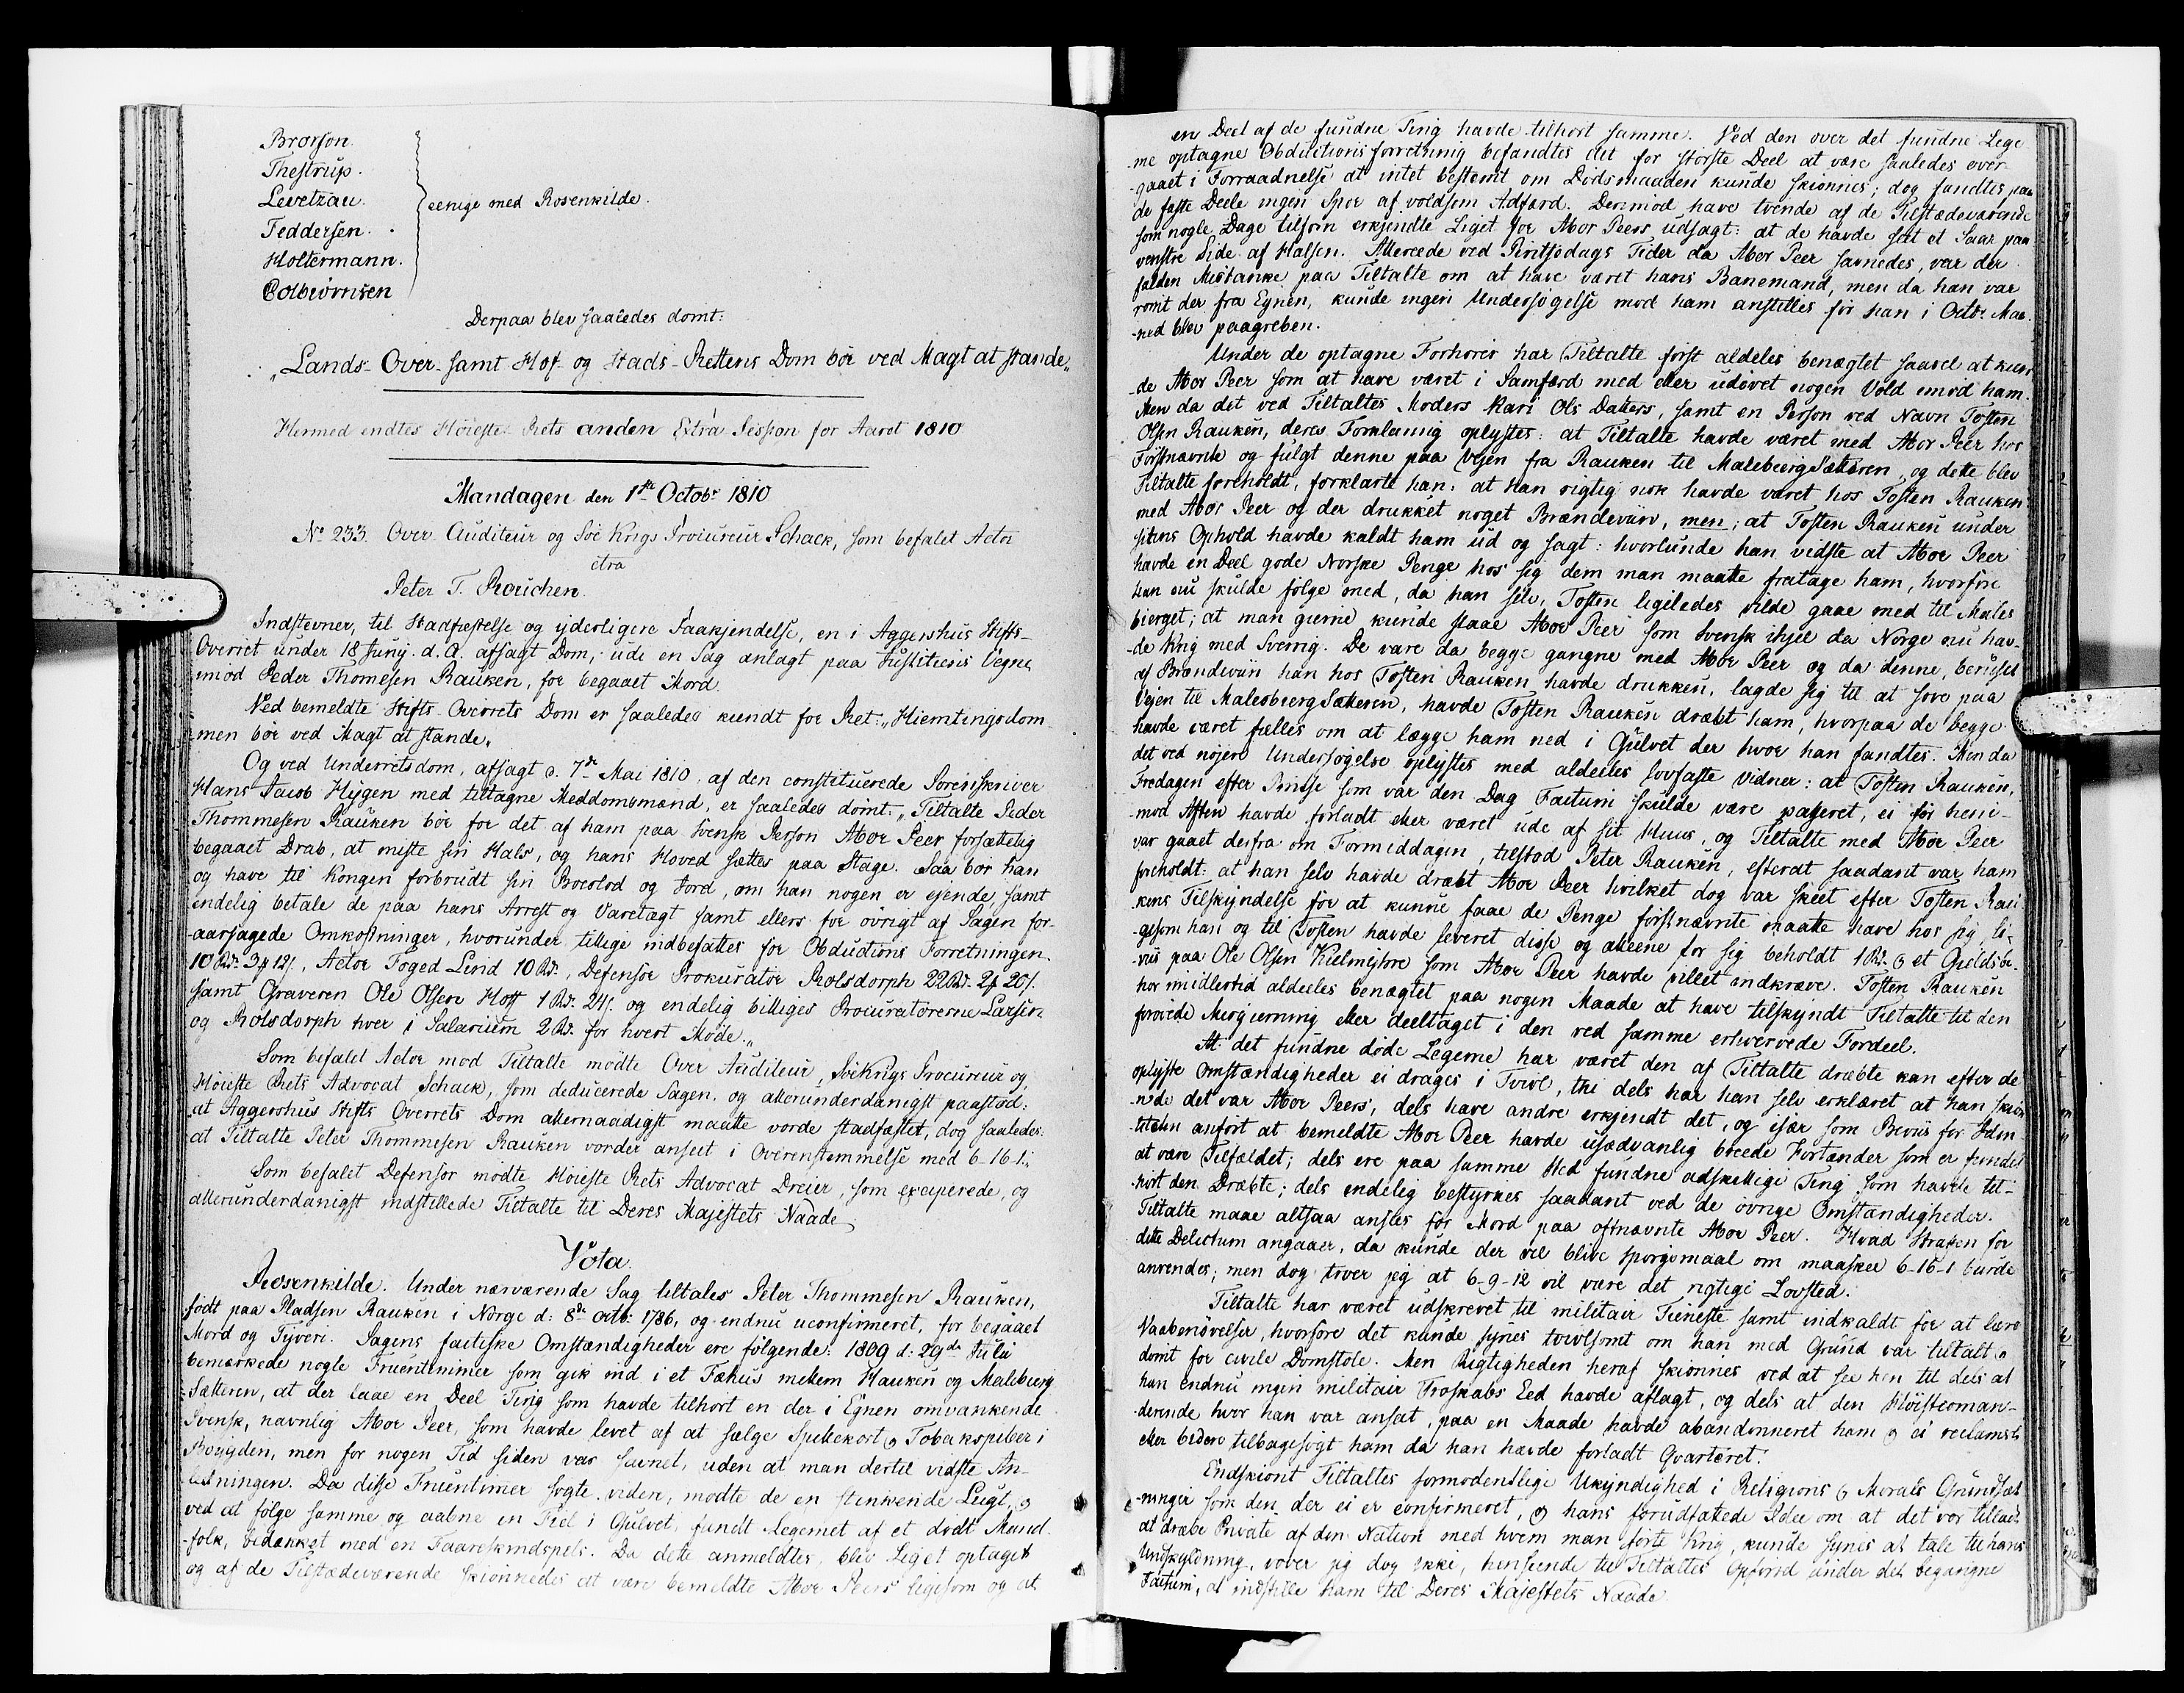 Brorson.
Thestrup.
Levetzau.
eenige med Rosenkilde.
Feddersen.
Holtermann.
Colbiörnsen
Derpaa blev saaledes dömt:
„Lands-Over-samt Hof- og Stads-Rettens Dom bör ved Magt at stande„
Hermed endtes Höieste Rets anden Extra Session for Aaret 1810
Mandagen den 1ste Octobr 1810
No 233. Over Auditeur og Söe Krigs Procureur Schack, som befalet Actor
ctra
Peter T. Rauchen.
Indstevner, til Stadfæstelse og yderligere Paakjendelse, en i Aggershus Stifts-
Overret under 18 Juny. d. A. afsagt Dom, udi en Sag anlagt paa Justitiens Vegne
imod Peder Thomesen Rauken, for begaaet Mord.
Ved bemeldte Stifts-Overrets Dom er saaledes kiendt for Ret: „Hiemtingsdom-
men bör ved Magt at stande„
Og ved Underretsdom, afsagt d. 7de Mai 1810, af den constituerede Sorenskriver
Hans Jacob Hygen med tiltagne Meddomsmænd, er saaledes dömt: „Tiltalte Peder
Thommesen Rauken bör for det af ham paa svensk Person Mor Peer forsættelig
begaaet Drab, at miste sin Hals, og hans Hoved sættes paa Stage. Saa bör han
og have til Kongen forbrudt sin Boeslod og Jord, om han nogen er ejende, samt
endelig betale de paa hans Arrest og Varetægt samt ellers for övrigt af Sagen for-
-aarsagede Omkostninger, hvorunder tillige indbefattes for Obductions Forretningen
10 Rd. 3 12 s., Actor Foged Lind 10 Rd., Defensor Prokurator Rolsdorph 22 Rd. 2 20 s.
samt Graveren Ole Olsen Hoff 1 Rd. 24 s. og endelig billiges Procuratorerne Larsen
og Rolsdorph hver i Salarium 2 Rd. for hvert Möde.„
Som befalet Actor mod Tiltalte mödte Over Auditeur, Söe Krigs Procureur og
Höieste Rets Advocat Schack, som deducerede Sagen, og allerunderdanigst paastod:
at Aggershus Stifts Overrets Dom allernaadigst maatte vorde stadfæstet, dog saaledes:
at Tiltalte Peter Thommesen Rauken vorder anseet i Overenstemmelse med 6-16-1.
Som befalet Defensor mödte Höieste Rets Advocat Dreier, som exciperede, og
allerunderdanigst indstillede Tiltalte til Deres Majestets Naade
Vota.
Rosenkilde. Under nærværende Sag tiltales Peter Thommesen Rauken,
födt paa Pladsen Rauken i Norge d: 8de octb: 1786, og endnu uconfirmeret, for begaaet
Mord og Tyverie. Sagens factiske Omstændigheder ere fölgende: 1809 d: 29de Julii
bemærkede nogle Fruentimmer som gik ind i et Fæhus mellem Hauken og Malebierg
Sætteren, at der laae en Deel Ting som havde tilhört en der i Egnen omvankende
Svensk, navnlig Mor Peer, som havde levet af at sælge Spillekort og Tobakspiber i
Bøygden, men for nogen Tid siden var savnet, uden at man dertil vidste An-
ledningen. Da disse Fruentimer sögte viden, mödte de en stinkende Lugt, og
ved at fölge samme og aabne en Fiel i Gulvet, fandt Legemet af et dödt Mand-
folk, bedækket med en Faareskindspels. Da dette anmeldtes, blev Liget optaget
og af de Tilstædeværende skiönnedes at være bemeldte Mor Peers ligesom og at
en Deel af de fundne Ting havde tilhört samme. Ved den over det fundne Lege-
-me optagne Obductionsforretning befandtes det for störste Deel at være saaledes over-
-gaaet i Forraadnelse at intet bestemt om Dödsmaaden kunde skiönnes; dog fandtes paa
de faste Deele ingen Spor af voldsom Adfærd. Derimod have tvende af de Tilstædeværende
som nogle Dage tilforn erkjendte Liget for Mor Peers udsagt: at de havde seet et Saar paa
venstre Side af Halsen. Allerede ved Pintsedags Tider da Mor Peer savnedes, var der
falden Mistanke paa Tiltalte om at have været hans Banemand, men da han var
römt der fra Egnen, kunde ingen Undersögelse mod ham anstilles för han i Octbr. Maa-
-ned blev paagreben.
Under de optagne Forhörer har Tiltalte först aldeles benægtet saavel at kien-
-de Mor Peer som at have været i Samfærd med eller udövet nogen Vold imod ham.
Men da det ved Tiltaltes Moders Kari Ols Datters, samt en Person ved Navn Tosten
Olsen Rauken, deres Forklaring oplystes: at Tiltalte havde været med Mor Peer hos
Förstnævnte og fulgt denne paa Vejen fra Rauken til MalebiergSætteren, og dette blev
Tiltalte foreholdt, forklarte han: at han rigtig nok havde været hos Tosten Rauken
med Mor Peer og der drukket noget Brændeviin, men; at Tosten Rauken under
sitens Ophold havde kaldt ham ud og sagt: hvorlunde han vidste at Mor Peer
havde en Deel gode Norske Penge hos sig dem man maatte fratage ham, hvorfore
han nu skulde fölge med, da han selv, Tosten ligeledes vilde gaae med til Males
bierget; at man gierne kunde slaae Mor Peer som Svensk ihjel da Norge nu hav-
-de Krig med Sverrig. De vare da begge gangne med Mor Peer og da denne, beruset
af Brændeviin han hos Tosten Rauken havde drukken, lagde sig til at sove paa
Vejen til MalesbiergSætteren, havde Tosten Rauken dræbt ham, hvorpaa de begge
havde været fælles om at lægge ham ned i Gulvet der hvor han fandtes. Men da
det ved nöjere Undersögelse oplystes med aldeeles lovfaste Vidner: at Tosten Rauken,
Fredagen efter Pintse som var den Dag Factum skulde være passeret, ei för heni-
-mod Aften havde forladt eller været ude af sit Huus, og Tiltalte med Mor Peer
var gaaet derfra om Formiddagen, tilstod Peter Rauken, efterat saadant var ham
foreholdt: at han selv havde dræbt Mor Peer hvilket dog var skeet efter Tosten Rau-
-kens Tilskyndelse for at kunne faae de Penge förstnævnte maatte have hos sig, li-
-gesom han og til Tosten havde leveret disse og alleene for sig beholdt 1 Rd. og et Gieldsbe-
-viis paa Ole Olsen Kielmejhre som Mor Peer havde villet indkræve. Tosten Rauken
har imidlertid aldeeles benægtet paa nogen Maade at have tilskyndt Tiltalte til den
forövede Misgierning eller deeltaget i den ved samme erhvervede Fordeel.
At det fundne döde Legeme har været den af Tiltalte dræbte kan efter de
oplyste Omstændigheder ei drages i Tvivl, thi dels har han selv erklæret at han skiön-
-nede det var Mor Peers, dels have andre erkjendt det, og især som Beviis for Iden-
titeten anfört at bemeldte Mor Peer havde usædvanlig breede Fortænder som er fundet
at være Tilfældet; dels ere paa samme Sted fundne adskellige Ting som havde til-
-hört den Dræbte; dels endelig bestyrkes saadant ved de övrige Omstændigheder.
Tiltalte maae altsaa ansees for Mord paa oftnævnte Mor Peer. Hvad Straffen for
dette Delictum angaaer, da kunde der vel blive Spörgsmaal om maaskee 6-16-1 burde
anvendes; men dog troer jeg at 6-9-12 vil være det rigtige Lovsted.
Tiltalte har været udskrevet til militair Tieneste samt indkaldt for at lære
Vaabenövelser, hvorfore det kunde synes tvivlsomt om han med Grund var tiltalt og
dömt for civile Domstole. Men Rigtigheden heraf skiönnes ved at see hen til dels at
han endnu ingen militair Troskabs Eed havde aflagt, og dels at den Höistcoman-
-derende hvor han var ansat, paa en Maade havde abandonneret ham og ei reclameret
eller videre tilbagesögt ham da han havde forladt Qvarteret.
Endskiönt Tiltaltes formodentlige Ukyndighed i Religions og Morals Grundsæt-
-ninger som den der ei er confirmeret, og hans forudfattede Idee om at det var tilladt
at dræbe Private af den Nation med hvem man förte Krig, kunde synes at tale til hans
Undskyldning, vover jeg dog ikke, henseende til Tiltaltes Opförsel under det begangne
Factum, at indstille ham til Deres Majestets Naade.